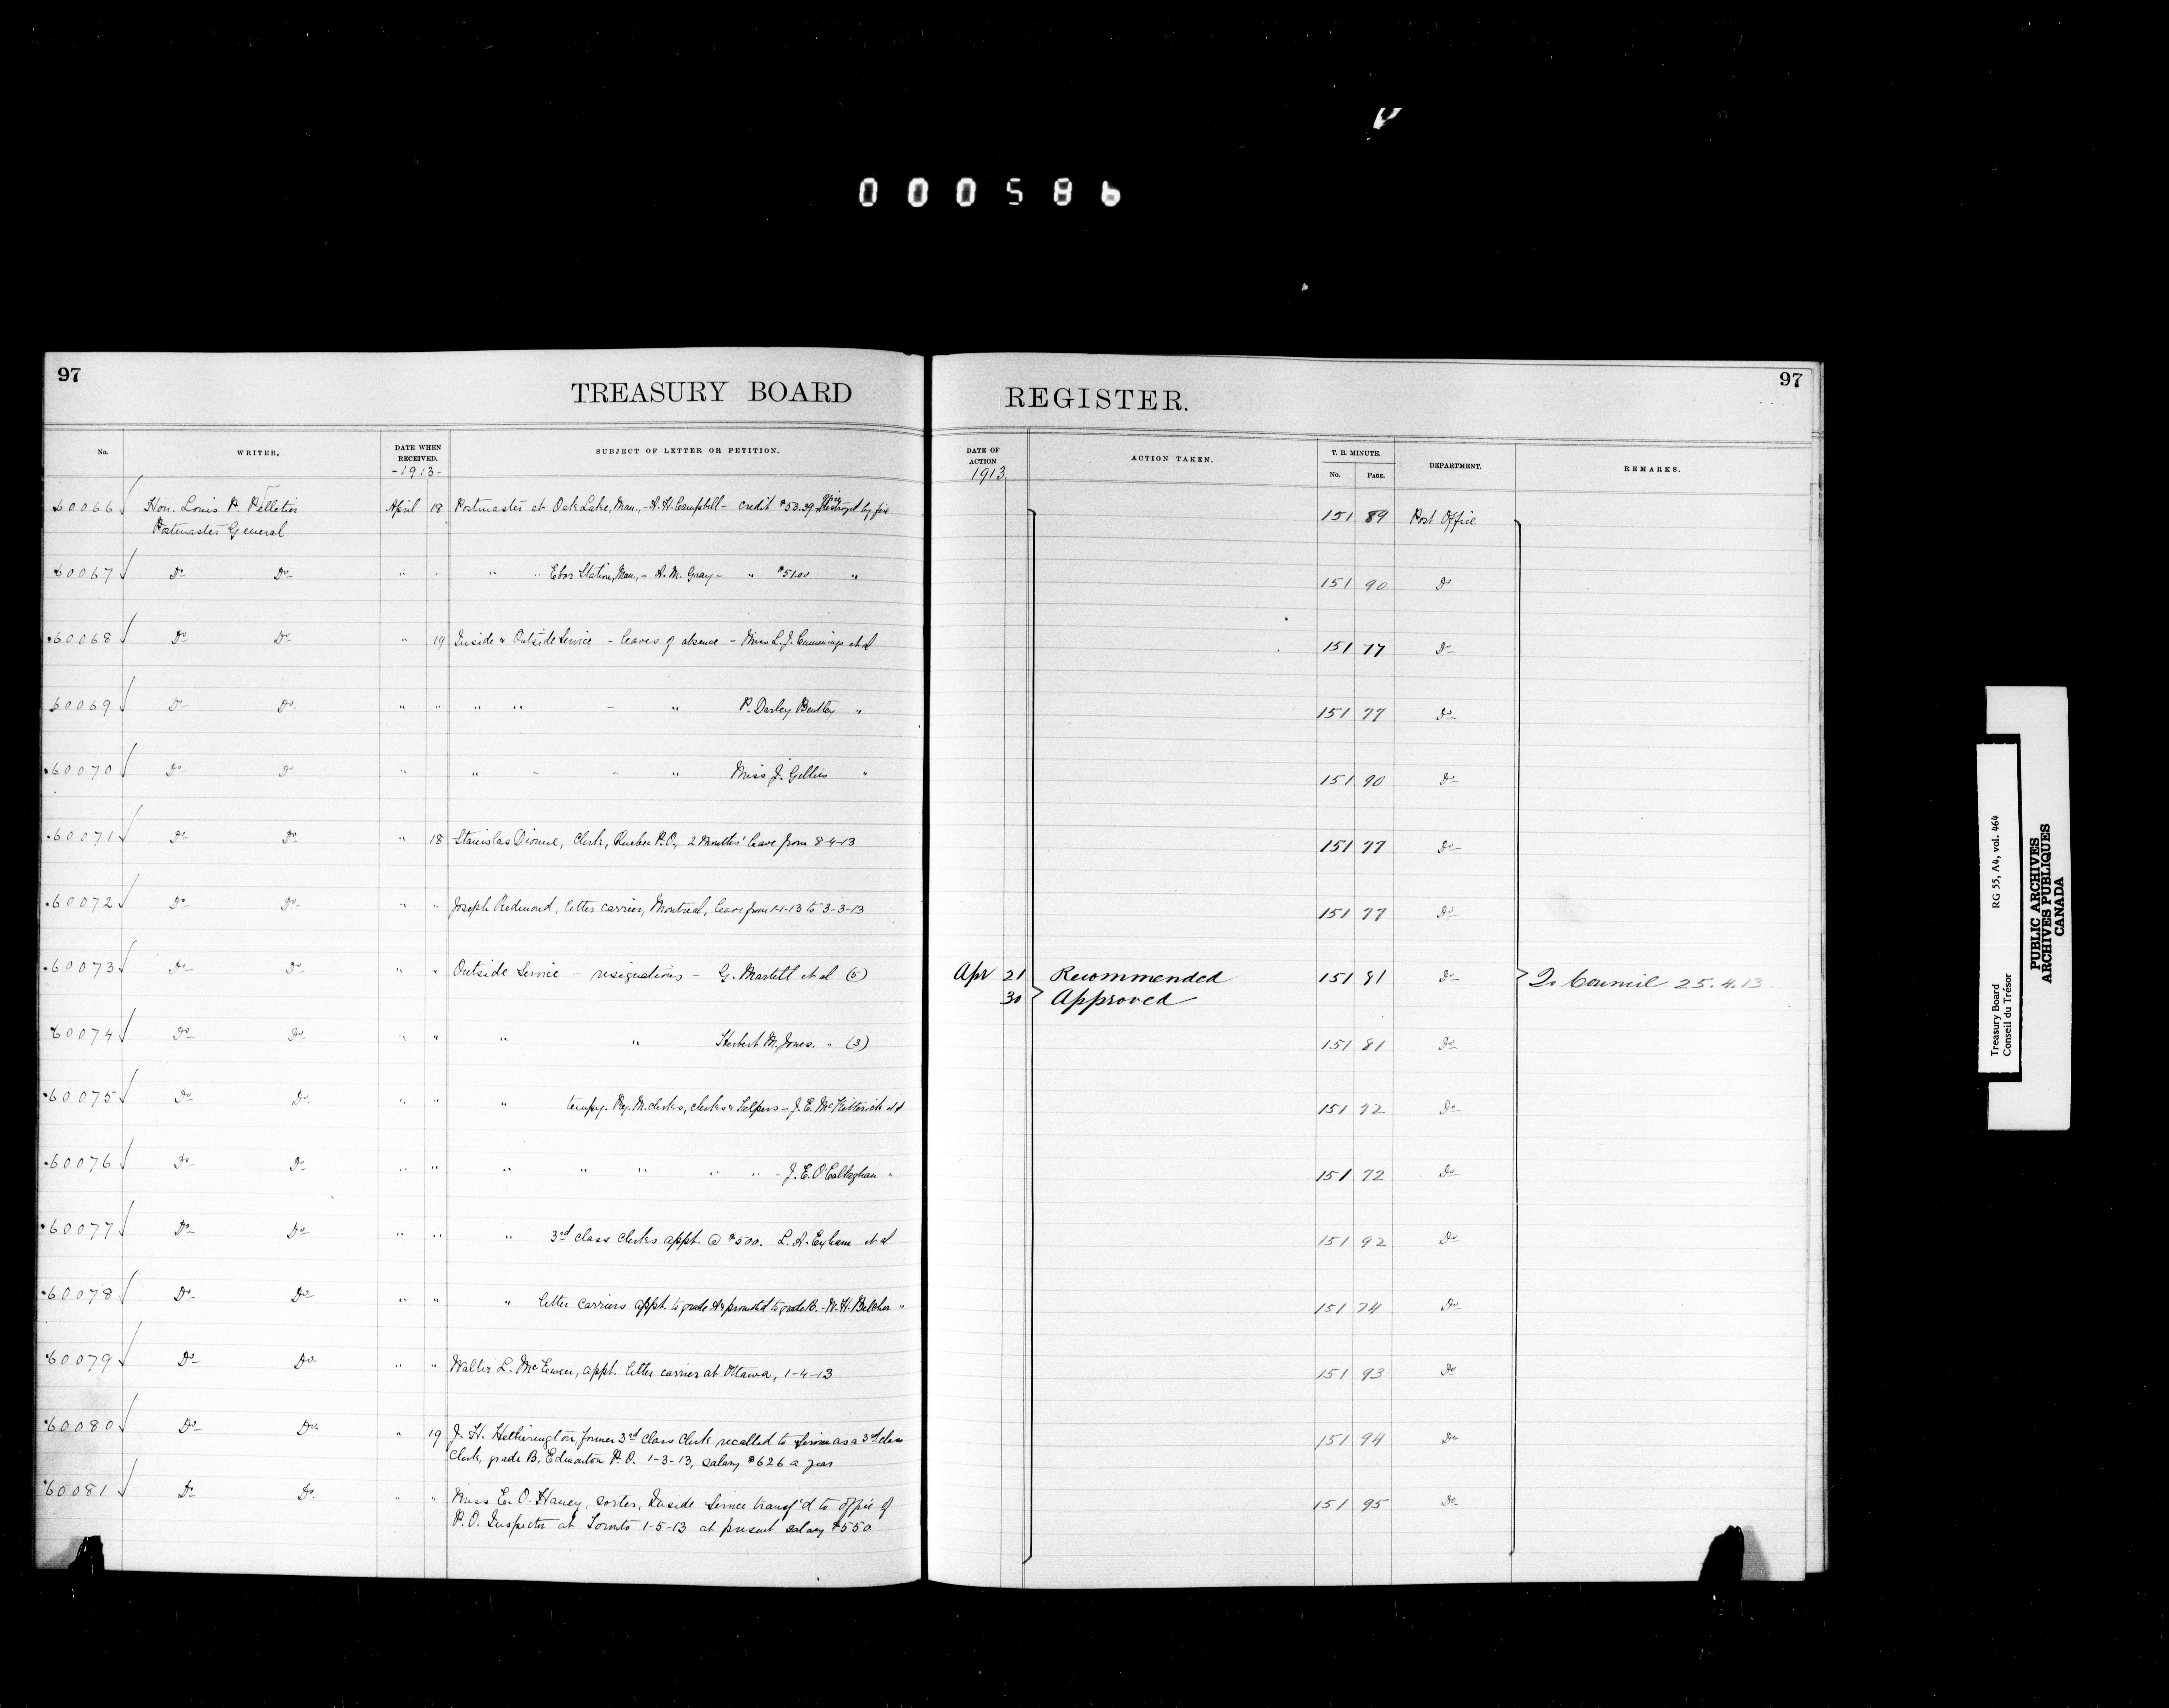 000586
97
TREASURY BOARD
REGISTER.
97
No.
WRITER.
DATE WHEN RECEIVED.
-1913-
SUBJECT OF LETTER OR PETITION.
DATE OF ACTION
1913
ACTION TAKEN.
T. B. MINUTE.
No. PAGE.
DEPARTMENT.
REMARKS.
60066 Hon. Louis P. Pelletier April 18 Postmaster at Oak Lake, Man., - A. H. Campbell - credit $53.39 destroyed by fire 151 89 Post Office
Postmaster General
60067 Do Do " " " " Ebor Station, Man., - A. M. Gray - " $51.00 " 151 90 Do
60068 Do Do " 19 Inside & Outside Service - leaves of absence - Miss L. J. Cummings et al 151 77 Do
60069 Do Do " " " " - " P. Darley Bentley " 151 77 Do
60070 Do Do " " - - " Miss J. Gillies " 151 90 Do
60071 Do Do " 18 Stanislas Dionne, Clerk, Quebec P.O., 2 Months' leave from 8-4-13 151 77 Do
60072 Do Do " " Joseph Redmond, letter carrier, Montreal, leave from 1-1-13 to 3-3-13 151 77 Do
60073 Do Do " " Outside Service - resignations - G. Martell et al (5) Apr 21 Recommended 151 91 Do To Council 25.4.13
30 Approved
60074 Do Do " " " " Herbert M. Jones. " (3) 151 81 Do
60075 Do Do " " " tempy. Ry. M. clerks, clerks & helpers - J. E. McKitterick et al 151 72 Do
60076 Do Do " " " " " " " - J. E. O'Callaghan " 151 72 Do
60077 Do Do " " " 3rd class clerks appt. @ $500. L. A. Exham et al 151 92 Do
60078 Do Do " " " letter carriers appt. to grade A & promoted to grade B. - W. H. Belcher " 151 74 Do
60079 Do Do " " Walter L. McEwen, appt. letter carrier at Ottawa, 1-4-13 151 93 Do
60080 Do Do " 19 J. H. Hetherington, former 3rd Class Clerk recalled to service as a 3rd class 151 94 Do
Clerk, grade B, Edmonton P.O. 1-3-13, salary $626 a year
60081 Do Do " " Miss E. O. Haney, sorter, Inside Service transf'd to office of 151 95 Do
P.O. Inspector at Toronto 1-5-13 at present salary $550
Treasury Board RG 55, A4, vol. 464
Conseil du Trésor
PUBLIC ARCHIVES
ARCHIVES PUBLIQUES
CANADA